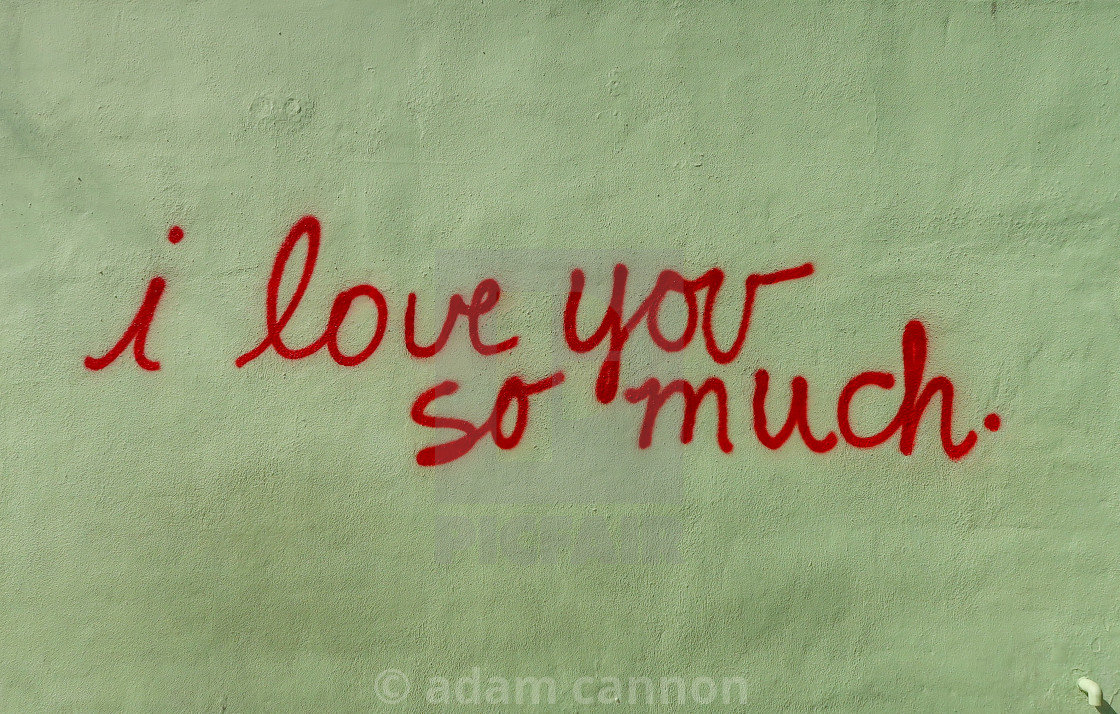 i love you
so much.
PICFAIR
© adam cannon